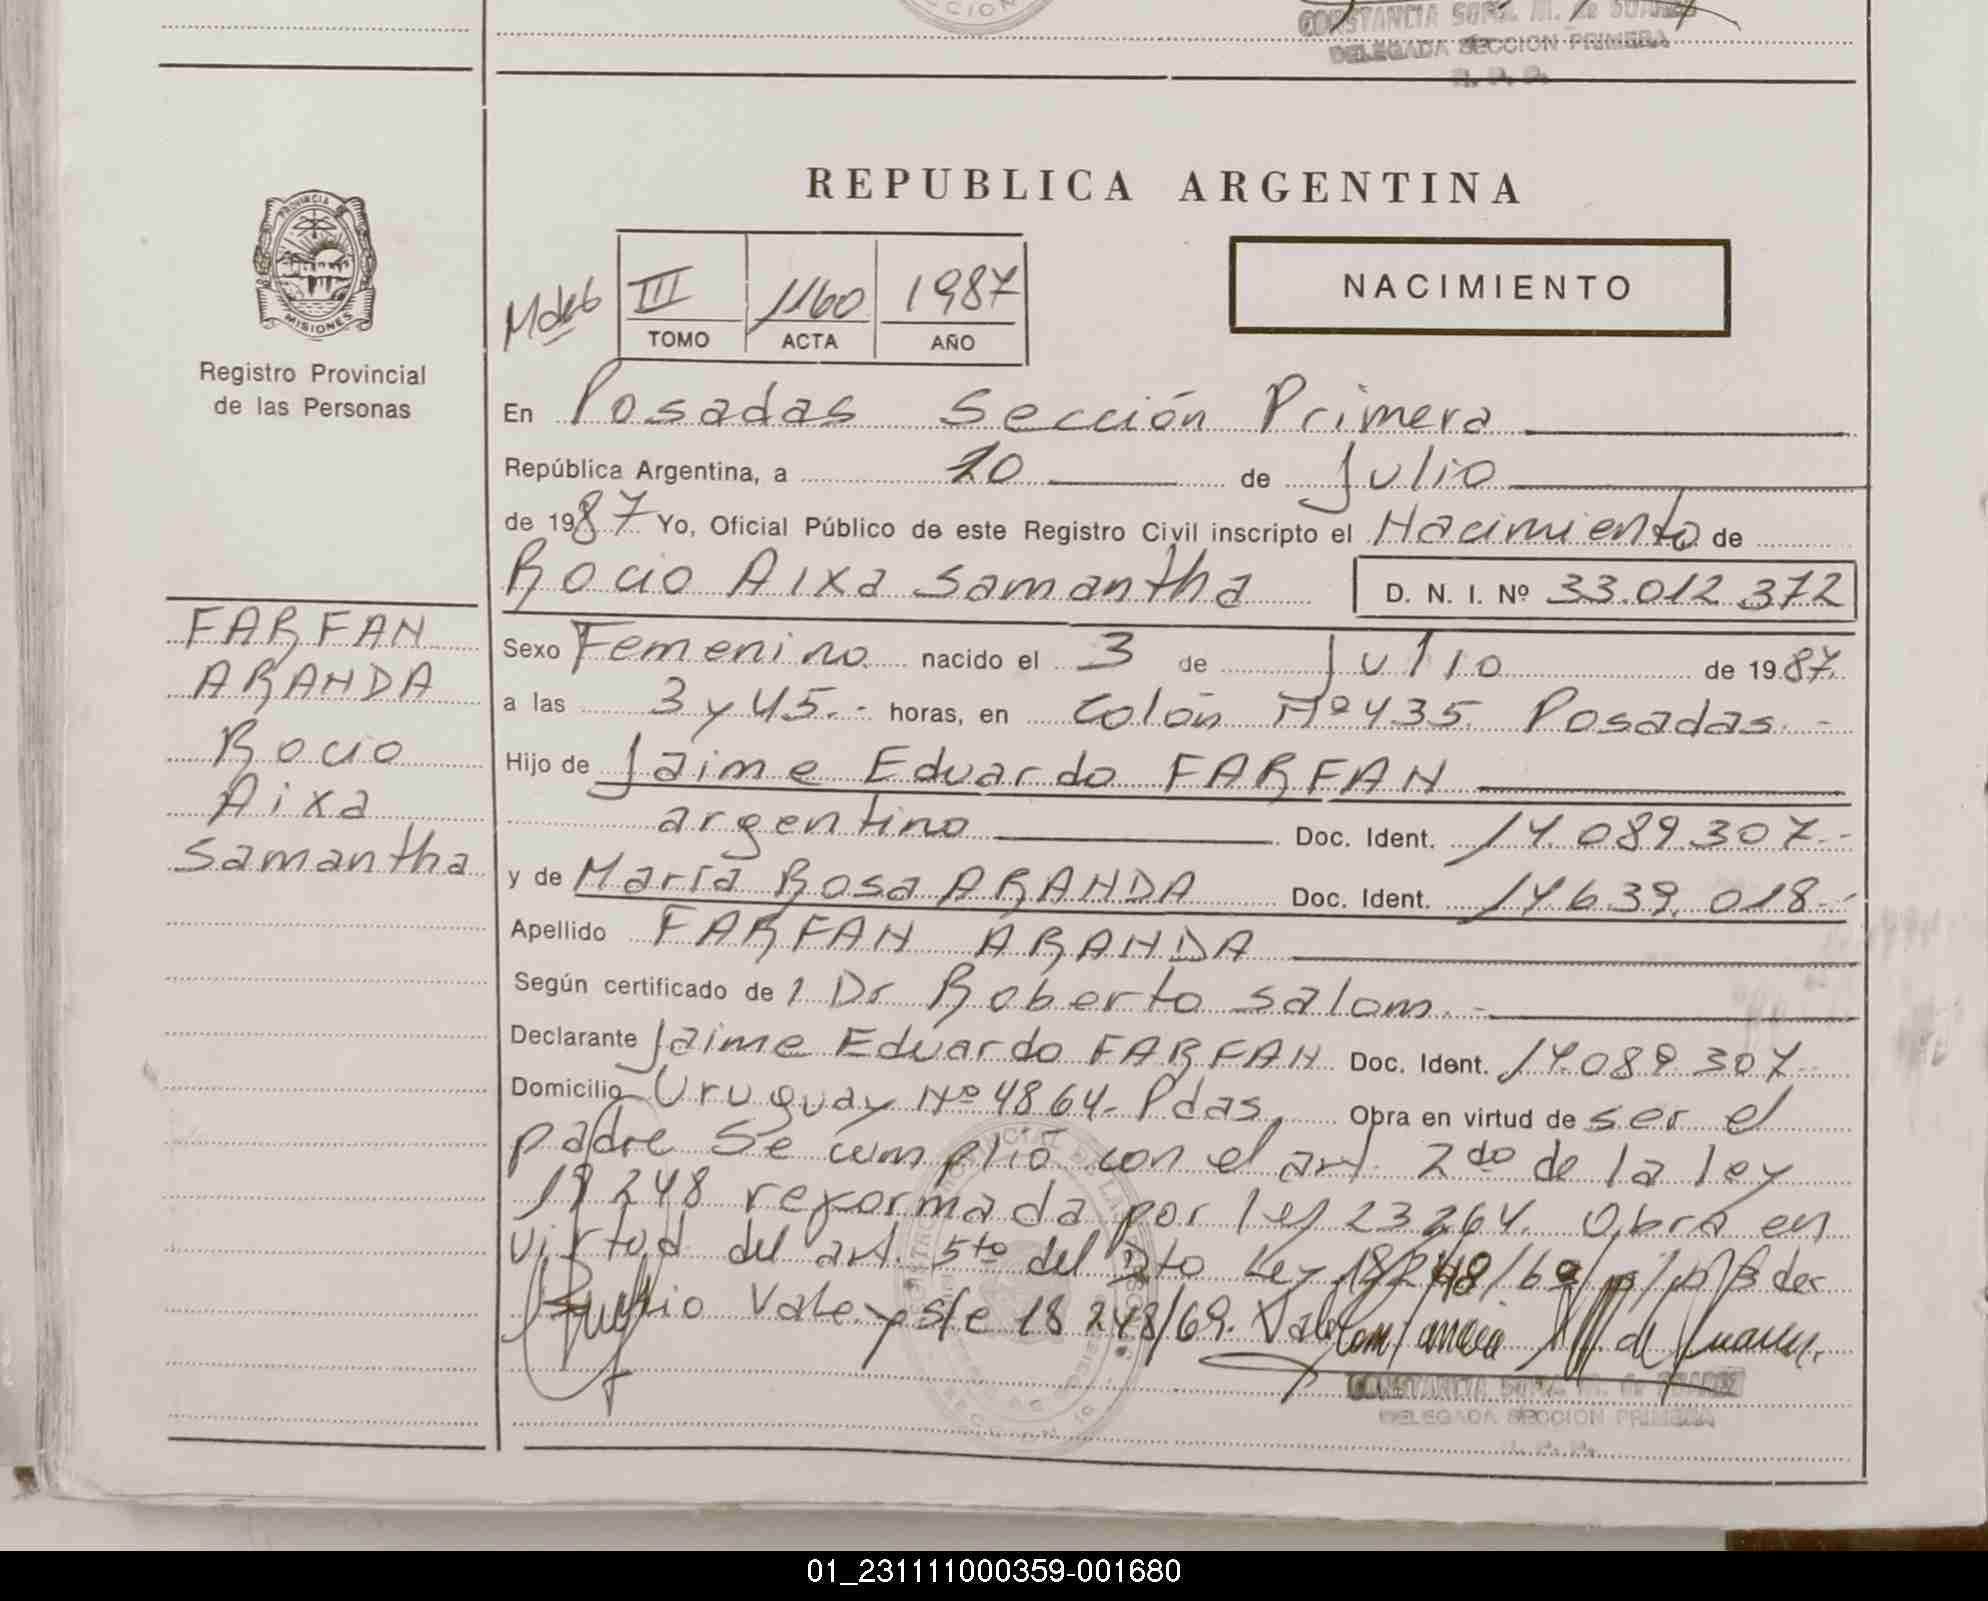 CONSTANCIA SOFIA M. de SUAREZ
DELEGADA SECCION PRIMERA
R. P. P.
REPUBLICA ARGENTINA
PROVINCIA DE
MISIONES
Registro Provincial
de las Personas
III 1160 1987
TOMO ACTA AÑO
NACIMIENTO
En Posadas Sección Primera
República Argentina, a 20 de Julio
de 1987 Yo, Oficial Público de este Registro Civil inscripto el Nacimiento de
Rocio Aixa Samantha D. N. I. Nº 33.012.372
FARFAN
ARANDA
Rocio
Aixa
Samantha
Sexo Femenino nacido el 3 de Julio de 1987.
a las 3 y 45.- horas, en Colón Nº 435. Posadas.-
Hijo de Jaime Eduardo FARFAN
argentino Doc. Ident. 14.089.307.-
y de María Rosa ARANDA Doc. Ident. 14.639.018.-
Apellido FARFAN ARANDA
Según certificado de l Dr Roberto Salom.-
Declarante Jaime Eduardo FARFAN Doc. Ident. 14.089.307-
Domicilio Uruguay Nº 4864- Pdas, Obra en virtud de ser el
padre Se cumplió con el art. 2do de la ley
18248 reformada por ley 23264. Obra en
virtud del art. 5to del Dto Ley 18248/69
Vale 18248/69.
CONSTANCIA SOFIA M. de SUAREZ
DELEGADA SECCION PRIMERA
R. P. P.
01_231111000359-001680